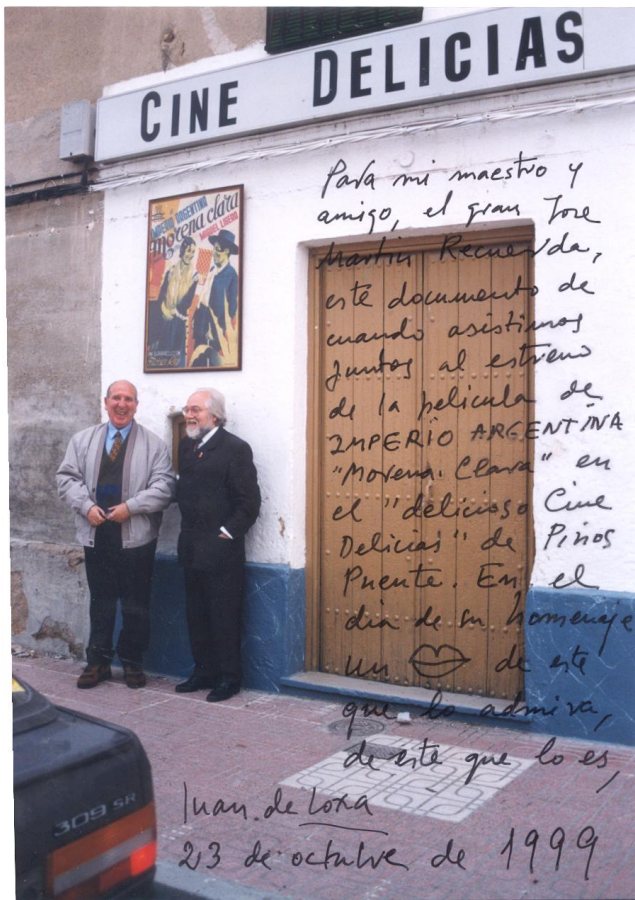 CINE DELICIAS
IMPERIO ARGENTINA
morena clara
MIGUEL LIGERO
Para mi maestro y
amigo, el gran Jose
Martin Recuerda,
este documento de
cuando asistimos
juntos al estreno
de la pelicula de
IMPERIO ARGENTINA
"Morena Clara" en
el "delicioso Cine
Delicias" de Pinos
Puente. En el
dia de su homenaje
un de este
que lo admira,
de este que lo es,
Juan de Loxa
23 de octubre de 1999
309 SR